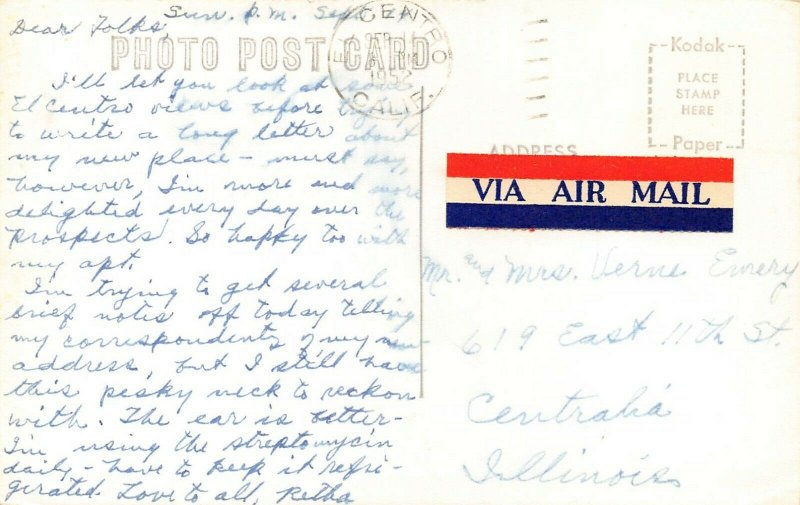 Sun. P.M. Sept
Dear Folks,
PHOTO POST CARD
EL CENTRO
SEP
PM
1952
CALIF.
Kodak
PLACE
STAMP
HERE
Paper
ADDRESS
VIA AIR MAIL
I'll let you look at some
El Centro views before trying
to write a long letter about
my new place - must say,
however, I'm more and more
delighted every day over the
prospects. So happy too with
my apt.
I'm trying to get several
brief notes off today telling
my correspondents of my new
address, but I still have
this pesky neck to reckon
with. The ear is better-
I'm using the streptomycin
daily - have to keep it refri-
gerated. Love to all, Retha
Mr. and Mrs. Verne Emery
619 East 11th St.
Centralia
Illinois